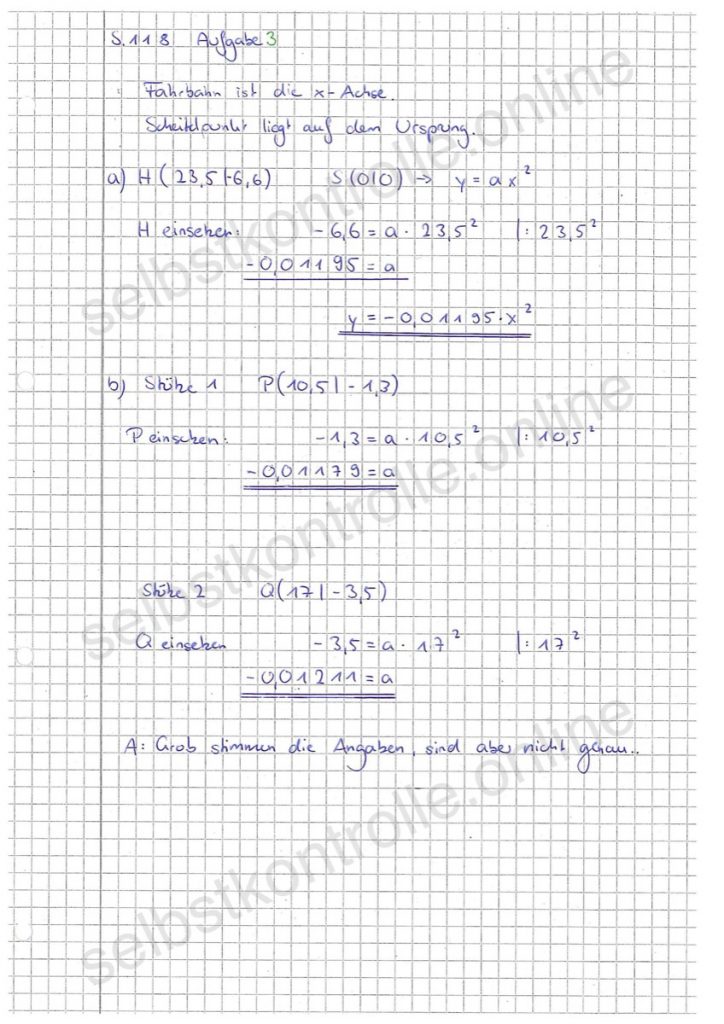 S. 118 Aufgabe 3
Fahrbahn ist die x-Achse.
Scheitelpunkt liegt auf dem Ursprung.
a) H(23,5|-6,6) S(0|0) → y = ax²
H einsetzen: -6,6 = a · 23,5² |: 23,5²
-0,01195 = a
y = -0,01195 · x²
b) Stütze 1 P(10,5|-1,3)
P einsetzen: -1,3 = a · 10,5² |: 10,5²
-0,01179 = a
Stütze 2 Q(17|-3,5)
Q einsetzen -3,5 = a · 17² |: 17²
-0,01211 = a
A: Grob stimmen die Angaben, sind aber nicht genau..
selbstkontrolle.online
selbstkontrolle.online
selbstkontrolle.online